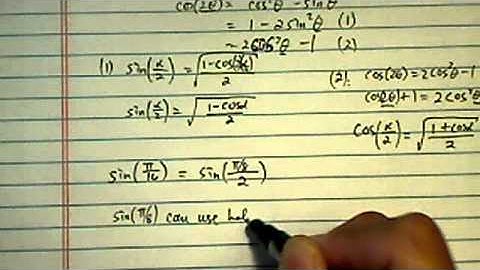 cos(2θ) = cos²θ - sin²θ
= 1 - 2sin²θ (1)
~ 2cos²θ - 1 (2)
(1) sin(α/2) = √(1-cos(2α/2)/2)
sin(α/2) = √(1-cosα/2)
(2): cos(2θ) = 2cos²θ-1
cos(2θ)+1 = 2cos²θ
cos(α/2) = √(1+cosα/2)
sin(π/16) = sin(π/8/2)
sin(π/8) can use hal